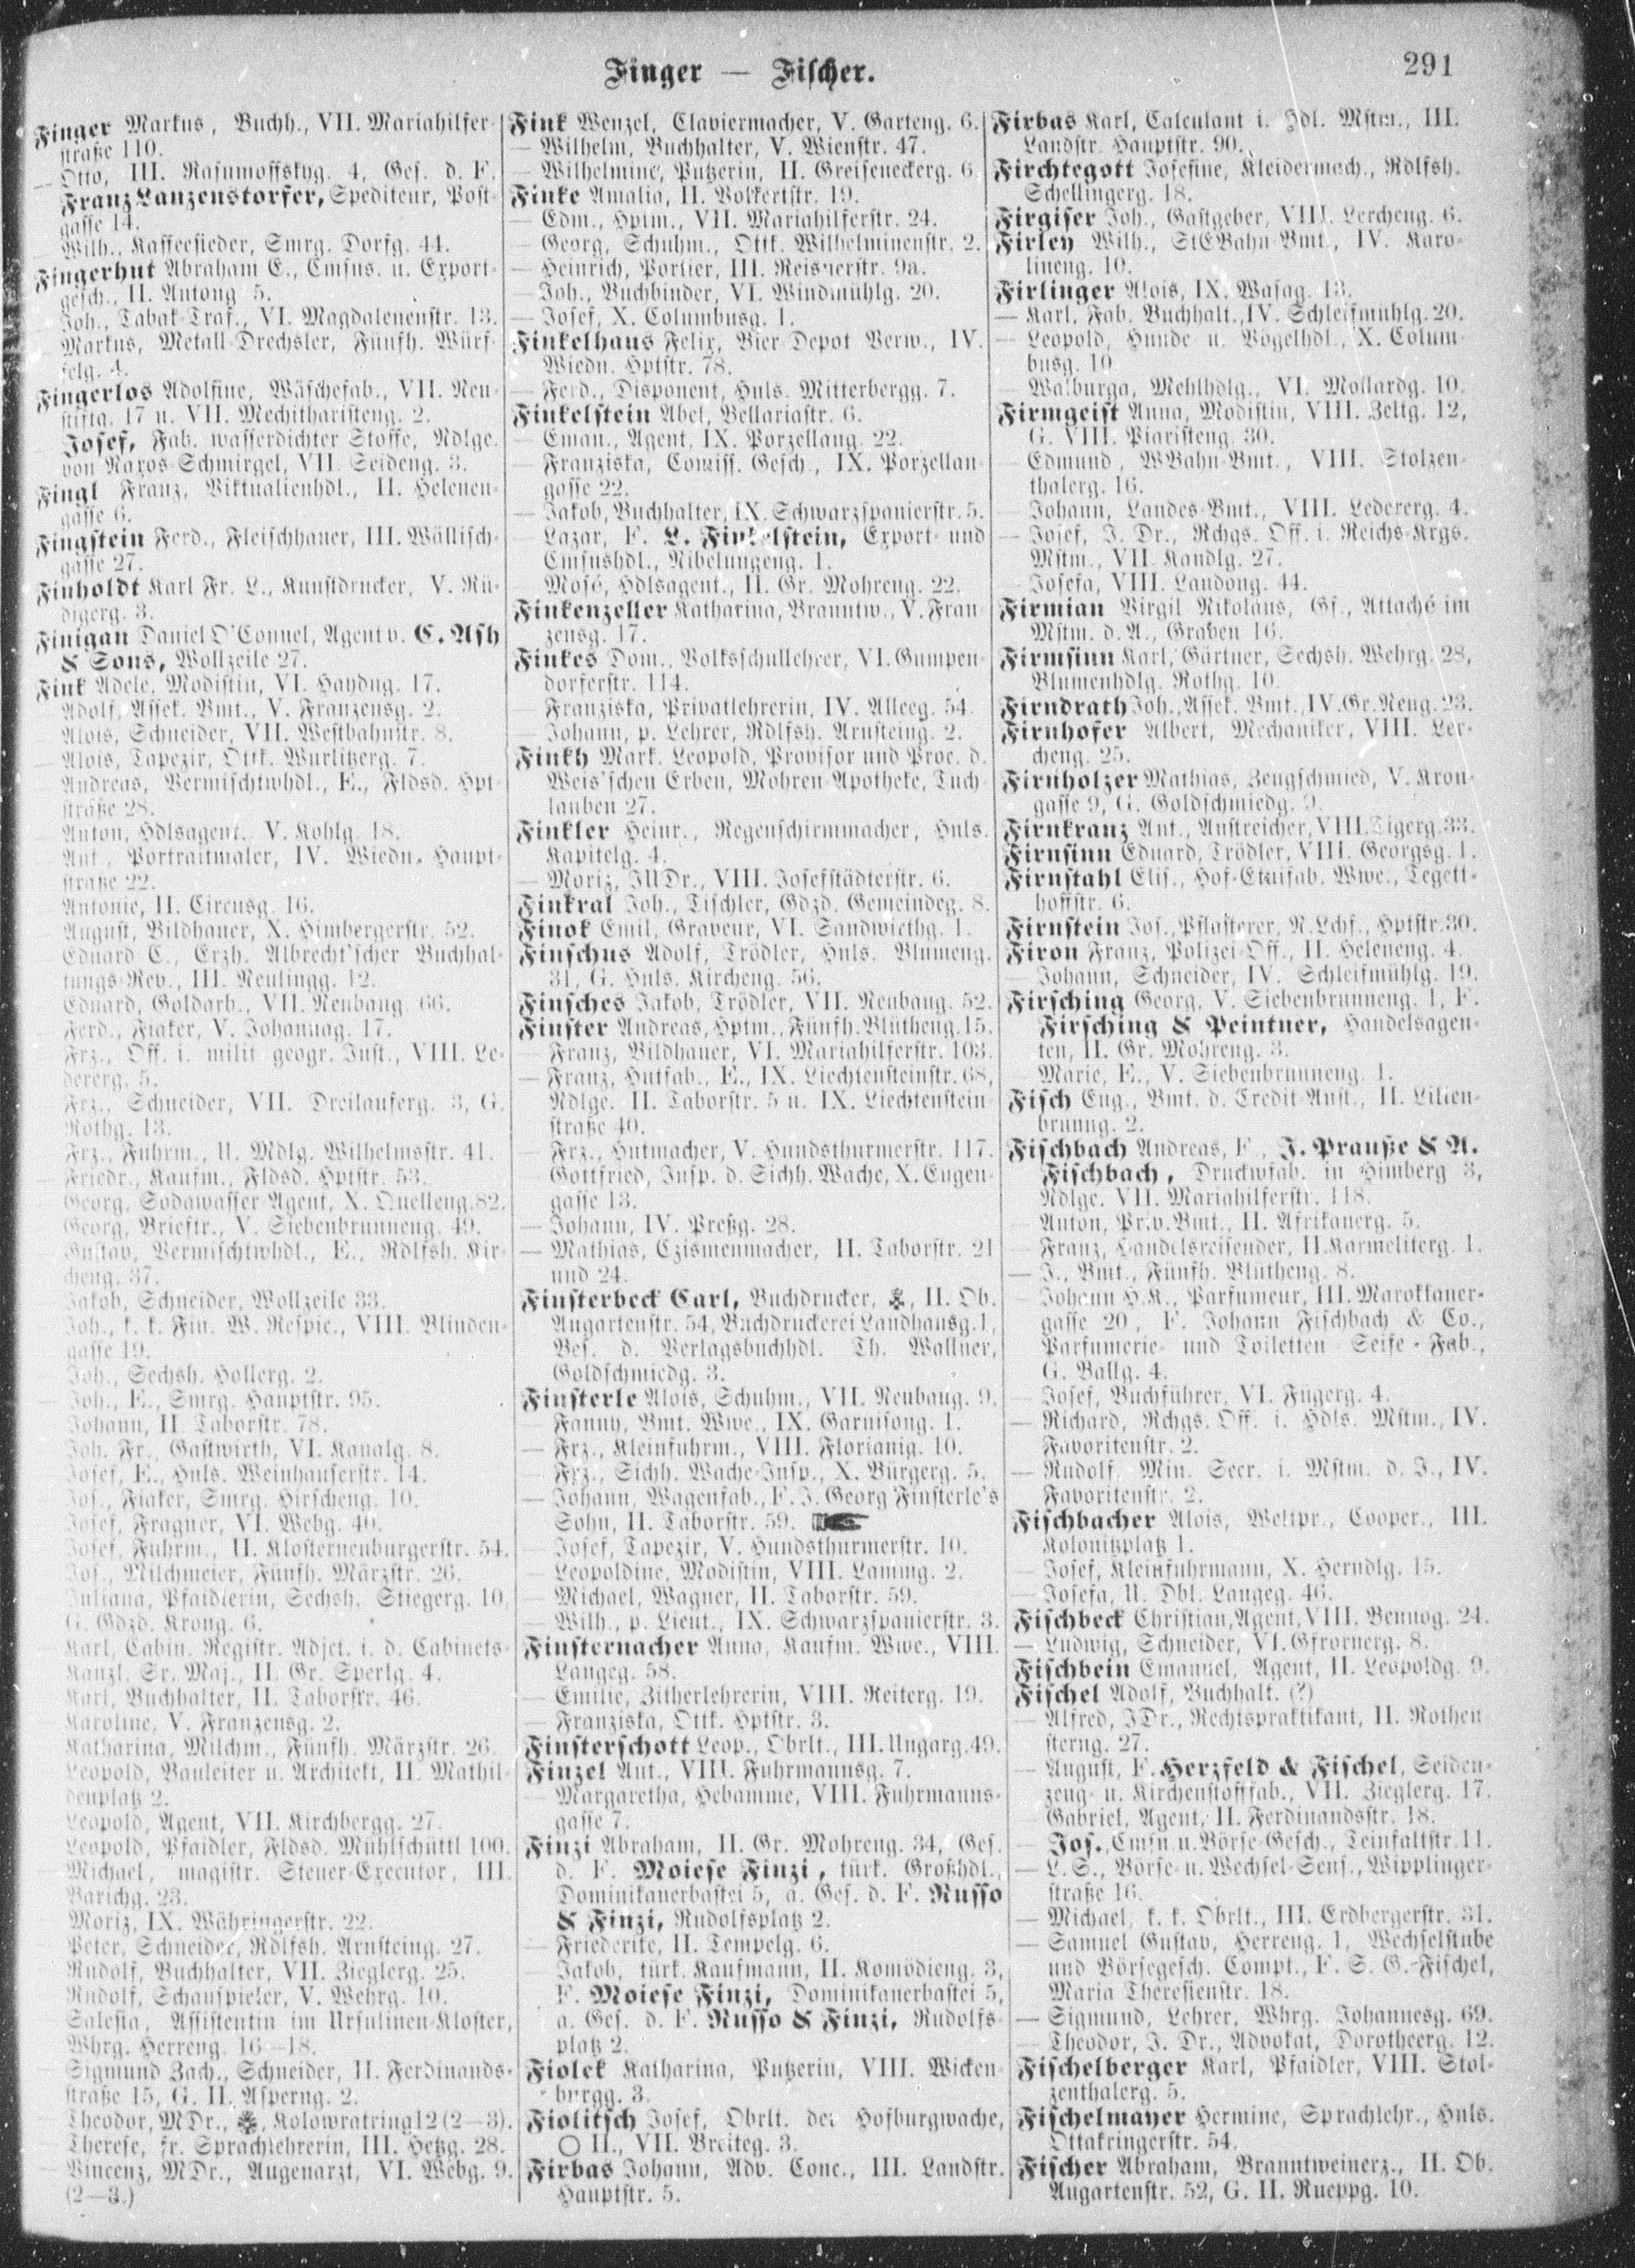 Finger — Fischer.
291
Finger Markus, Buchh., VII. Mariahilfer-
straße 110.
— Otto, III. Rasumoffskyg. 4, Ges. d. F.
Franz Lanzenstorfer, Spediteur, Post-
gasse 14.
— Wilh., Kaffeesieder, Smrg. Dorfg. 44.
Fingerhut Abraham E., Emsns. u. Export-
gesch., II. Antong 5.
— Joh., Tabak-Traf., VI. Magdalenenstr. 13.
— Markus, Metall-Drechsler, Fünfh. Würf-
felg. 4.
Fingerlos Adolfine, Wäschefab., VII. Neu-
stiftg. 17 u. VII. Mechitharisteng. 2.
— Josef, Fab. wasserdichter Stoffe, Ndlge.
von Naxos-Schmirgel, VII. Seideng. 3.
Fingl Franz, Viktualienhdl., II. Helenen-
gasse 6.
Fingstein Ferd., Fleischhauer, III. Wällisch-
gasse 27.
Finholdt Karl Fr. L., Kunstdrucker, V. Rü-
digerg. 3.
Finigan Daniel O'Connel, Agent v. C. Ash
& Sons, Wollzeile 27.
Fink Adele, Modistin, VI. Haydng. 17.
Adolf, Assek. Bmt., V. Franzensg. 2.
Alois, Schneider, VII. Westbahnstr. 8.
— Alois, Tapezir, Ottk. Wurlitzerg. 7.
Andreas, Vermischtwhdl., E., Fldsd. Hpt-
straße 28.
Anton, Hdlsagent. V. Kohlg. 18.
Ant., Portraitmaler, IV. Wiedn. Haupt-
straße 22.
Antonie, II. Circusg. 16.
August, Bildhauer, X. Himbergerstr. 52.
Eduard C., Erzh. Albrecht'scher Buchhal-
tungs-Rev., III. Reulingg. 12.
Eduard, Goldarb., VII. Neubaug. 66.
Ferd., Fiaker, V. Johannag. 17.
Frz., Off. i. milit geogr. Inst., VIII. Le-
dererg. 5.
Frz., Schneider, VII. Dreilauferg. 3, G.
Rothg. 13.
Frz., Fuhrm., U. Mdlg. Wilhelmsstr. 41.
Friedr., Kaufm., Fldsd. Hptstr. 53.
Georg, Sodawasser-Agent, X. Quelleng. 82.
Georg, Brieftr., V. Siebenbrunneng. 49.
Gustav, Vermischtwhdl., E., Rdlfsh. Kir-
cheng. 37.
Jakob, Schneider, Wollzeile 33.
Joh., k. k. Fin. W. Respic., VIII. Blinden-
gasse 19.
Joh., Sechsh. Hollerg. 2.
Joh., E., Smrg. Hauptstr. 95.
Johann, II. Taborstr. 78.
Joh. Fr., Gastwirth, VI. Kanalg. 8.
Josef, E., Hnls. Weinhauserstr. 14.
Jos., Fiaker, Smrg. Hirscheng. 10.
Josef, Fragner, VI. Webg. 40.
Josef, Fuhrm., II. Klosterneuburgerstr. 54.
Jos., Milchmeier, Fünfh. Märzstr. 26.
Juliana, Pfaidlerin, Sechsh. Stiegerg. 10,
G. Gdzd. Krong. 6.
Karl, Cabin. Registr. Adjct. i. d. Cabinets-
Kanzl. Sr. Maj., II. Gr. Sperlg. 4.
Karl, Buchhalter, II. Taborstr. 46.
Karoline, V. Franzensg. 2.
Katharina, Milchm., Fünfh. Märzstr. 26.
Leopold, Bauleiter u. Architekt, II. Mathil-
denplatz 2.
Leopold, Agent, VII. Kirchbergg. 27.
Leopold, Pfaidler, Fldsd. Mühlschüttl 100.
— Michael, magistr. Steuer-Executor, III.
Barichg. 23.
Moriz, IX. Währingerstr. 22.
— Peter, Schneider, Rdlfsh. Arnsteing. 27.
Rudolf, Buchhalter, VII. Zieglerg. 25.
— Rudolf, Schauspieler, V. Wehrg. 10.
— Salesia, Assistentin im Ursulinen-Kloster,
Whrg. Herreng. 16—18.
— Sigmund Zach., Schneider, II. Ferdinands-
straße 15, G. II. Asperng. 2.
— Theodor, MDr., Kolowratring 12 (2—3).
— Therese, fr. Sprachlehrerin, III. Hetzg. 28.
— Vincenz, MDr., Augenarzt, VI. Webg. 9.
(2—3.)
Fink Wenzel, Claviermacher, V. Garteng. 6.
— Wilhelm, Buchhalter, V. Wienstr. 47.
— Wilhelmine, Putzerin, II. Greiseneckerg. 6
Finke Amalia, II. Volkertstr. 19.
— Edm., Hptm., VII. Mariahilferstr. 24.
— Georg, Schuhm., Ottk. Wilhelminenstr. 2.
— Heinrich, Portier, III. Reisnerstr. 9a.
— Joh., Buchbinder, VI. Windmühlg. 20.
— Josef, X. Columbusg. 1.
Finkelhaus Felix, Bier-Depot Verw., IV.
Wiedn. Hptstr. 78.
— Ferd., Disponent, Hnls. Mitterbergg. 7.
Finkelstein Abel, Bellariastr. 6.
— Eman., Agent, IX. Porzellang. 22.
— Franziska, Comiss. Gesch., IX. Porzellan-
gasse 22.
— Jakob, Buchhalter, IX. Schwarzspanierstr. 5.
— Lazar, F. L. Finkelstein, Export- und
Emsnshdl., Nibelungeng. 1.
— Mosé, Hdlsagent., II. Gr. Mohreng. 22.
Finkenzeller Katharina, Branntw., V. Fran-
zensg. 17.
Finkes Dom., Volksschullehrer, VI. Gumpen-
dorferstr. 114.
— Franziska, Privatlehrerin, IV. Alleeg. 54.
— Johann, p. Lehrer, Rdlfsh. Arnsteing. 2.
Finkh Mark. Leopold, Provisor und Proc. d.
Weis'schen Erben, Mohren-Apotheke, Tuch-
lauben 27.
Finkler Heinr., Regenschirmmacher, Hnls.
Kapitelg. 4.
— Moriz, JUDr., VIII. Josefstädterstr. 6.
Finkral Joh., Tischler, Gdzd. Gemeindeg. 8.
Finok Emil, Graveur, VI. Sandwirthg. 1.
Finschus Adolf, Trödler, Hnls. Blumeng.
31, G. Hnls. Kircheng. 56.
Finsches Jakob, Trödler, VII. Neubaug. 52.
Finster Andreas, Hptm., Fünfh. Blütheng. 15.
— Franz, Bildhauer, VI. Mariahilferstr. 103.
— Franz, Hutfab., E., IX. Liechtensteinstr. 68,
Ndlge. II. Taborstr. 5 u. IX. Liechtenstein-
straße 40.
— Frz., Hutmacher, V. Hundsthurmerstr. 117.
Gottfried, Insp. d. Sichh. Wache, X. Eugen-
gasse 13.
— Johann, IV. Preßg. 28.
— Mathias, Czismenmacher, II. Taborstr. 21
und 24.
Finsterbeck Carl, Buchdrucker, II. Ob.
Augartenstr. 54, Buchdruckerei Landhausg. 1,
Bes. d. Verlagsbuchhdl. Th. Wallner,
Goldschmiedg. 3.
Finsterle Alois, Schuhm., VII. Neubaug. 9.
— Fanny, Bmt. Wwe., IX. Garnisong. 1.
— Frz., Kleinfuhrm., VIII. Florianig. 10.
Frz., Sichh. Wache-Insp., X. Bürgerg. 5.
— Johann, Wagenfab., F. J. Georg Finsterle's
Sohn, II. Taborstr. 59.
— Josef, Tapezir, V. Hundsthurmerstr. 10.
— Leopoldine, Modistin, VIII. Lammg. 2.
— Michael, Wagner, II. Taborstr. 59.
— Wilh., p. Lieut., IX. Schwarzspanierstr. 3.
Finsternacher Anna, Kaufm. Wwe., VIII.
Langeg. 58.
— Emilie, Zitherlehrerin, VIII. Reiterg. 19.
— Franziska, Ottk. Hptstr. 3.
Finsterschott Leop., Obrlt., III. Ungarg. 49.
Finzel Ant., VIII. Fuhrmannsg. 7.
— Margaretha, Hebamme, VIII. Fuhrmanns-
gasse 7.
Finzi Abraham, II. Gr. Mohreng. 34, Ges.
d. F. Moiese Finzi, türk. Großhdl.,
Dominikanerbastei 5, a. Ges. d. F. Russo
& Finzi, Rudolfsplatz 2.
— Friederike, II. Tempelg. 6.
— Jakob, türk. Kaufmann, II. Komödieng. 3,
F. Moiese Finzi, Dominikanerbastei 5,
a. Ges. d. F. Russo & Finzi, Rudolfs-
platz 2.
Fiolek Katharina, Putzerin, VIII. Wicken-
burgg. 3.
Fiolitsch Josef, Obrlt. der Hofburgwache,
○ II., VII. Breiteg. 3.
Firbas Johann, Adv. Conc., III. Landstr.
Hauptstr. 5.
Firbas Karl, Calculant i. Fdl. Mstm., III.
Landstr. Hauptstr. 90.
Firchtegott Josefine, Kleidermach., Rdlfsh.
Schellingerg. 18.
Firgiser Joh., Gastgeber, VIII. Lercheng. 6.
Firley Wilh., StEBahn-Bmt., IV. Karo-
lineng. 10.
Firlinger Alois, IX. Wasag. 13.
— Karl, Fab. Buchhalt., IV. Schleifmühlg. 20.
— Leopold, Hunde u. Vögelhdl., X. Colum-
busg. 10
— Walburga, Mehlhdlg., VI. Mollardg. 10.
Firmgeist Anna, Modistin, VIII. Zeltg. 12,
G. VIII. Piaristeng. 30.
— Edmund, WBahn-Bmt., VIII. Stolzen-
thalerg. 16.
— Johann, Landes-Bmt., VIII. Ledererg. 4.
— Josef, J. Dr., Rchgs. Off. i. Reichs-Krgs.
Mstm., VII. Kandlg. 27.
— Josefa, VIII. Landong. 44.
Firmian Virgil Nikolaus, Gf., Attaché im
Mstm. d. A., Graben 16.
Firmsinn Karl, Gärtner, Sechsh. Wehrg. 28,
Blumenhdlg. Rothg. 10.
Firndrath Joh., Assek. Bmt., IV. Gr. Neug. 23.
Firnhofer Albert, Mechaniker, VIII. Ler-
cheng. 25.
Firnholzer Mathias, Zeugschmied, V. Kron-
gasse 9, G. Goldschmiedg. 9.
Firnkranz Ant., Anstreicher, VIII. Tigerg. 33.
Firnsinn Eduard, Trödler, VIII. Georgsg. 1.
Firnstahl Elis., Hof-Etuifab. Wwe., Tegett-
hoffstr. 6.
Firnstein Jos., Pflasterer, N. Lchf., Hptstr. 30.
Firon Franz, Polizei-Off., II. Heleneng. 4.
— Johann, Schneider, IV. Schleifmühlg. 19.
Firsching Georg, V. Siebenbrunneng. 1, F.
Firsching & Peintner, Handelsagen-
ten, II. Gr. Mohreng. 3.
— Marie, E., V. Siebenbrunneng. 1.
Fisch Eug., Bmt. d. Credit-Anst., II. Lilien-
brunng. 2.
Fischbach Andreas, F., J. Prauße & A.
Fischbach, Druckwfab. in Himberg 3,
Ndlge. VII. Mariahilferstr. 118.
— Anton, Priv. Bmt., II. Afrikanerg. 5.
— Franz, Handelsreisender, II. Karmeliterg. 1.
— J., Bmt., Fünfh. Blütheng. 8.
— Johann H. K., Parfumeur, III. Marokkaner-
gasse 20, F. Johann Fischbach & Co.,
Parfumerie- und Toiletten-Seife-Fab.,
G. Ballg. 4.
— Josef, Buchführer, VI. Fügerg. 4.
— Richard, Rchgs. Off. i. Hdls. Mstm., IV.
Favoritenstr. 2.
— Rudolf, Min. Secr. i. Mstm. d. J., IV.
Favoritenstr. 2.
Fischbacher Alois, Weltpr., Cooper., III.
Kolonitzplatz 1.
— Josef, Kleinfuhrmann, X. Herndlg. 15.
— Josefa, U. Dbl. Langeg. 46.
Fischbeck Christian, Agent, VIII. Bennog. 24.
— Ludwig, Schneider, VI. Gfrornerg. 8.
Fischbein Emanuel, Agent, II. Leopoldg. 9.
Fischel Adolf, Buchhalt. (?)
— Alfred, JDr., Rechtspraktikant, II. Rothen-
sterng. 27.
— August, F. Herzfeld & Fischel, Seiden-
zeug- u. Kirchenstofffab., VII. Zieglerg. 17.
— Gabriel, Agent, II. Ferdinandsstr. 18.
— Jos., Emsn u. Börse-Gesch., Teinfaltstr. 11.
— L. S., Börse- u. Wechsel-Sens., Wipplinger-
straße 16.
— Michael, k. k. Obrlt., III. Erdbergerstr. 31.
— Samuel Gustav, Herreng. 1, Wechselstube
und Börsegesch. Compt., F. S. G. Fischel,
Maria Theresienstr. 18.
— Sigmund, Lehrer, Whrg. Johannesg. 69.
— Theodor, J. Dr., Advokat, Dorotheerg. 12.
Fischelberger Karl, Pfaidler, VIII. Stol-
zenthalerg. 5.
Fischelmayer Hermine, Sprachlehr., Hnls.
Ottakringerstr. 54.
Fischer Abraham, Branntweinerz., II. Ob.
Augartenstr. 52, G. II. Rueppg. 10.